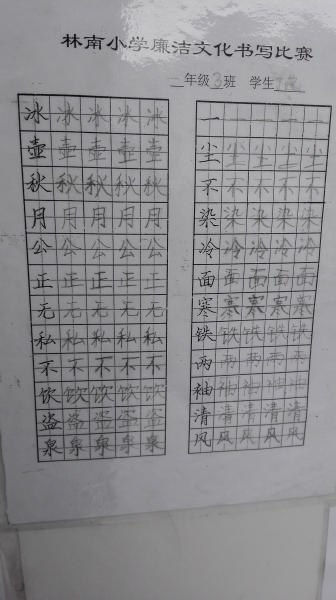 林南小学廉洁文化书写比赛
二年级3班 学生
冰冰冰冰冰
壶壶壶壶壶
秋秋秋秋秋
月月月月月
公公公公公
正正正正正
无无无无无
私私私私私
不不不不不
饮饮饮饮饮
盗盗盗盗盗
泉泉泉泉泉
一一一一一
尘尘尘尘尘
不不不不不
染染染染染
冷冷冷冷冷
面面面面面
寒寒寒寒寒
铁铁铁铁铁
两两两两两
袖袖袖袖袖
清清清清清
风风风风风